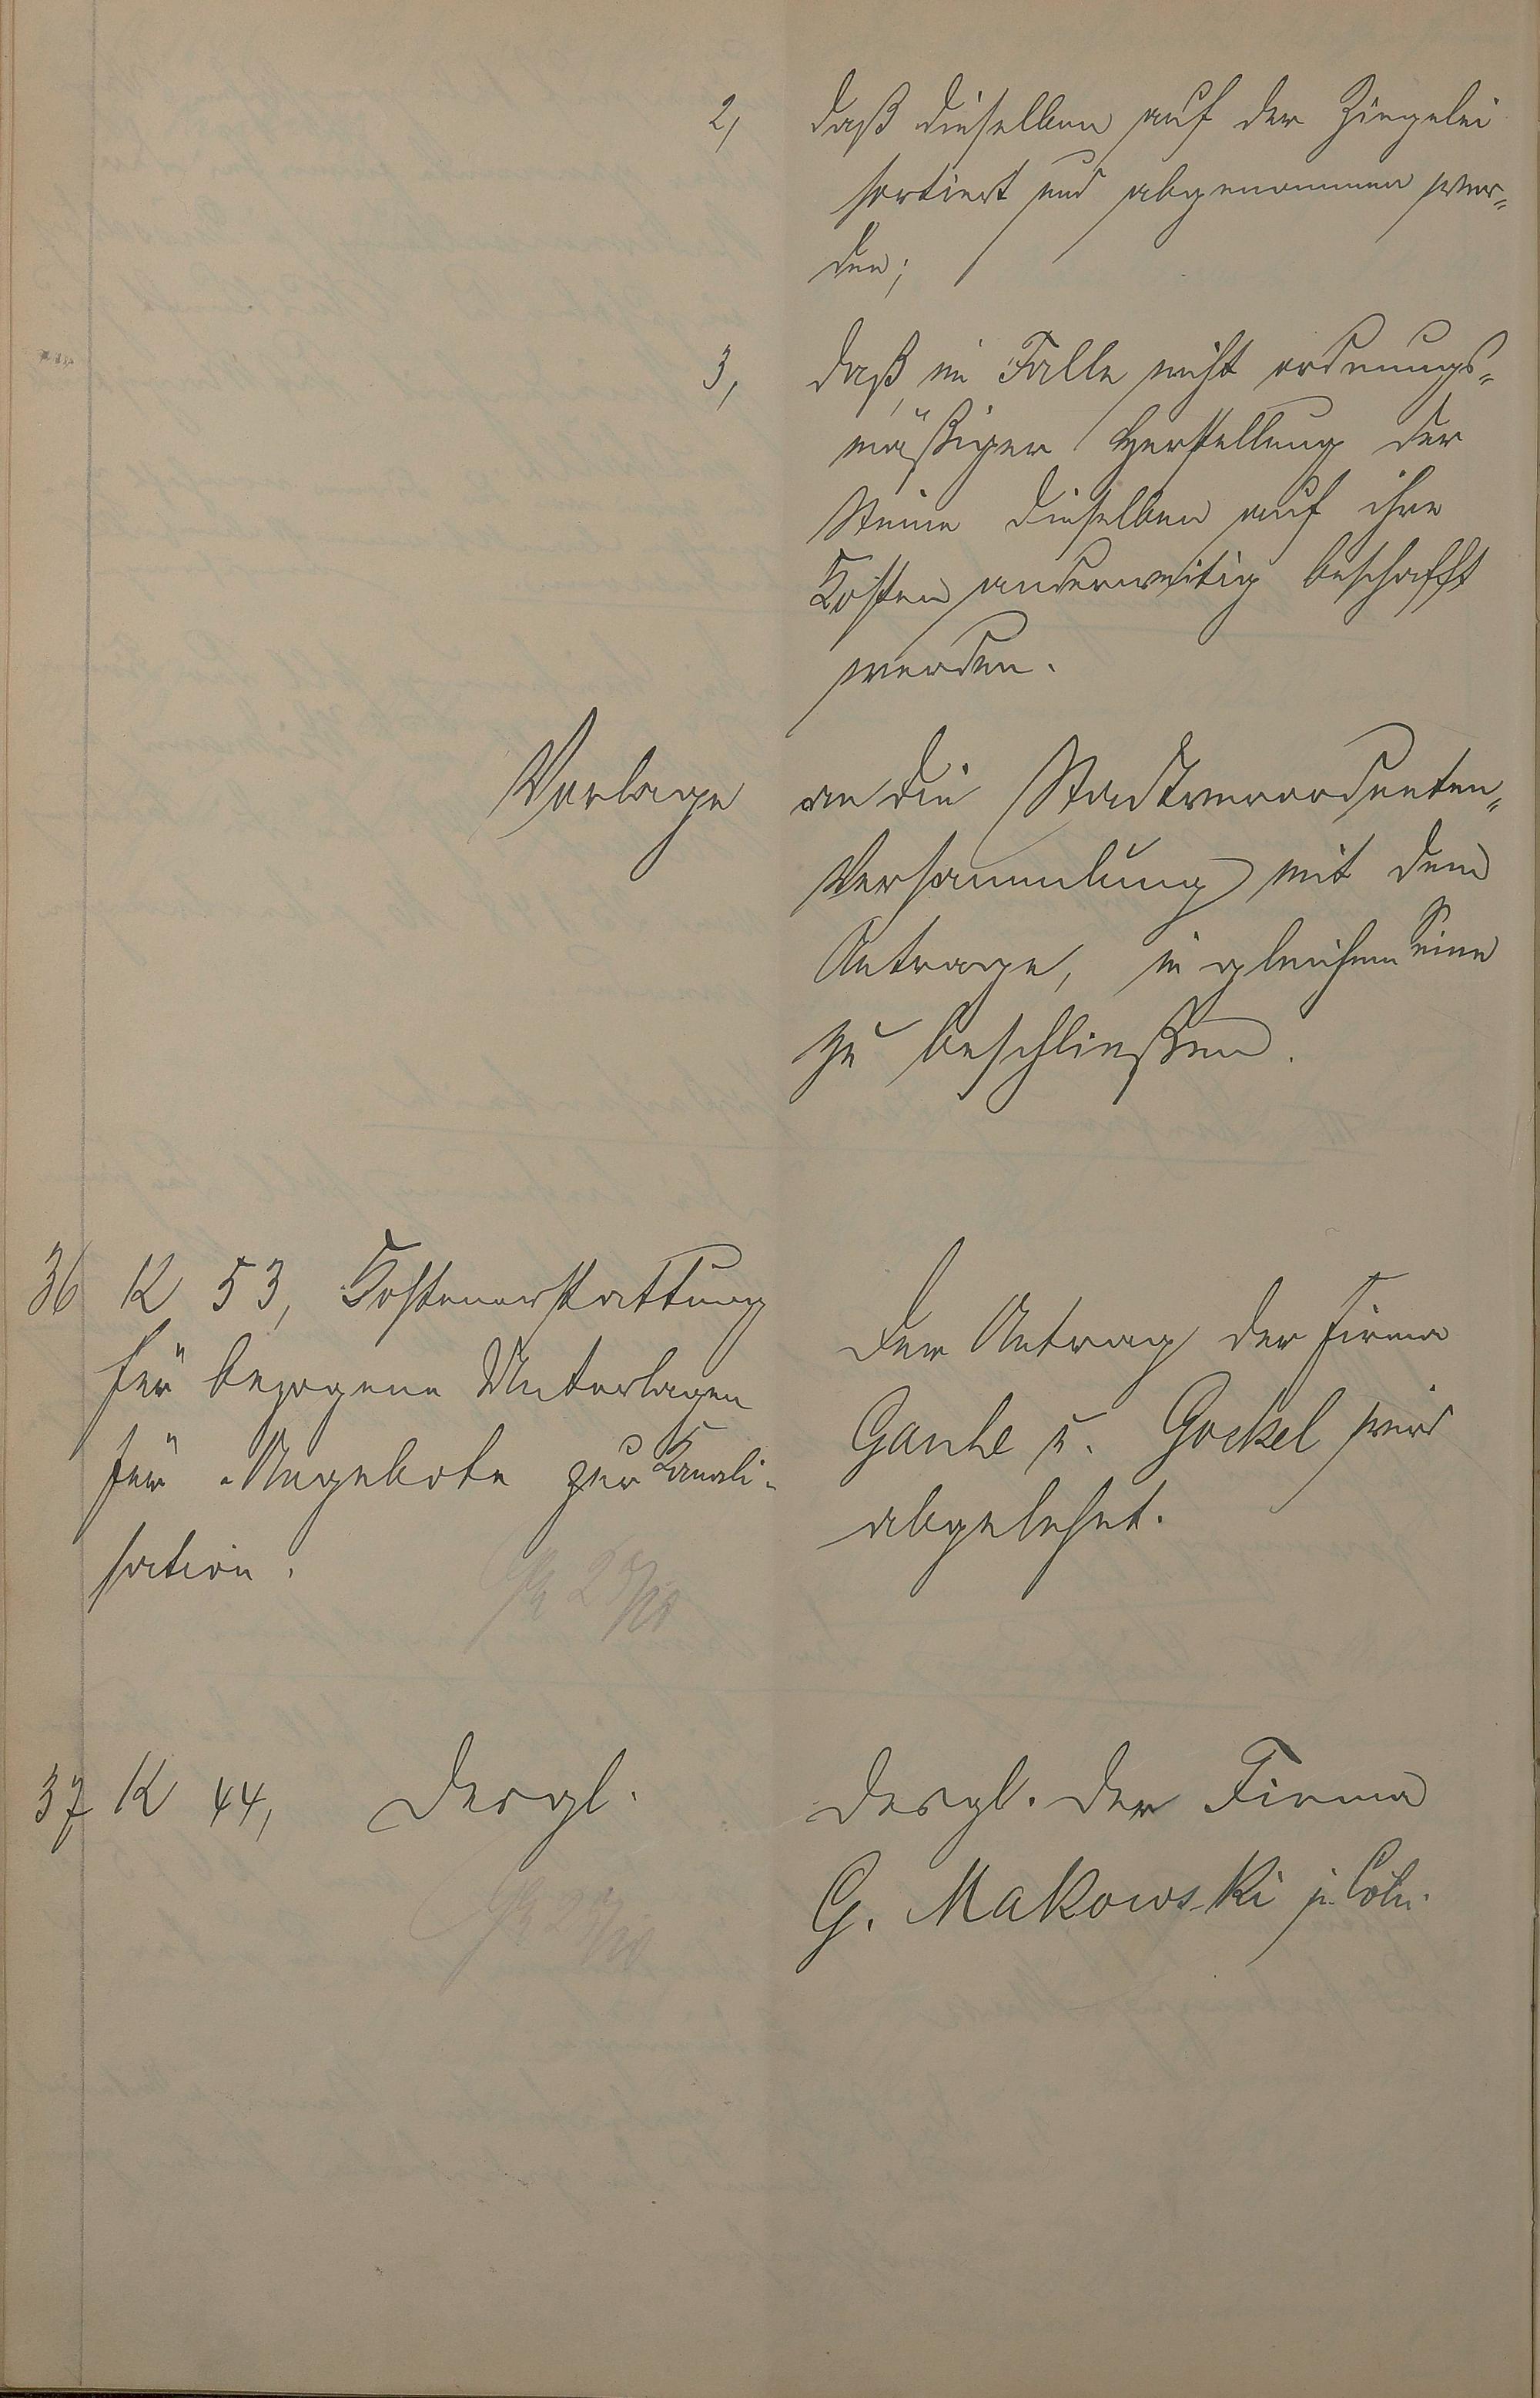 2, daß dieselben auf der Ziegelei
sortiert und abgenommen wer=
den;
3, daß, im Falle nicht ordnungs=
mäßiger Herstellung der
Steine dieselben auf ihre
Kosten anderweitig beschafft
werden.
Vorlage an die Stadtverordneten=
Versammlung mit dem
Antrage, in gleichem Sinne
zu beschließen.
36 K 53, Kostenerstattung
für bezogene Unterlagen
für Angebote zur Kanali-
sation.
Der Antrag der Firma
Ganhe u. Gockel wird
abgelehnt.
37 K 44, Desgl.
Desgl. der Firma
G. Makowski in Cöln.